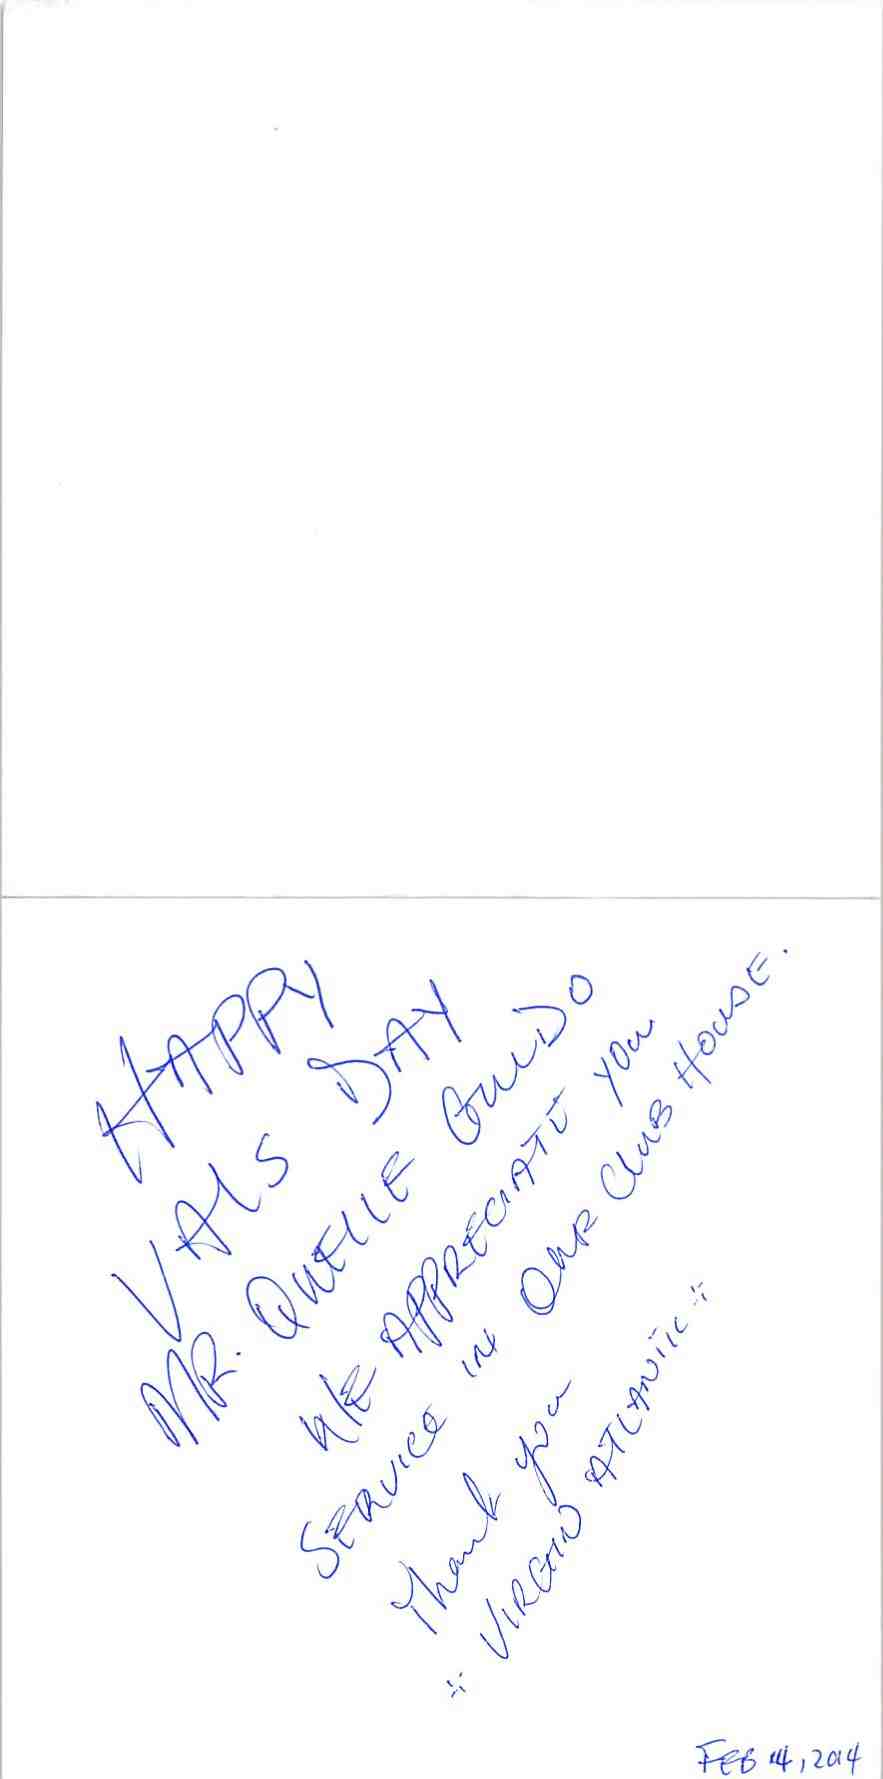 HAPPY
VALS DAY
MR. QUELLE GUIDO
WE APPRECIATE YOU
SERVICE IN OUR CLUB HOUSE.
Thank you
÷ VIRGIN ATLANTIC ÷
FEB 14, 2014